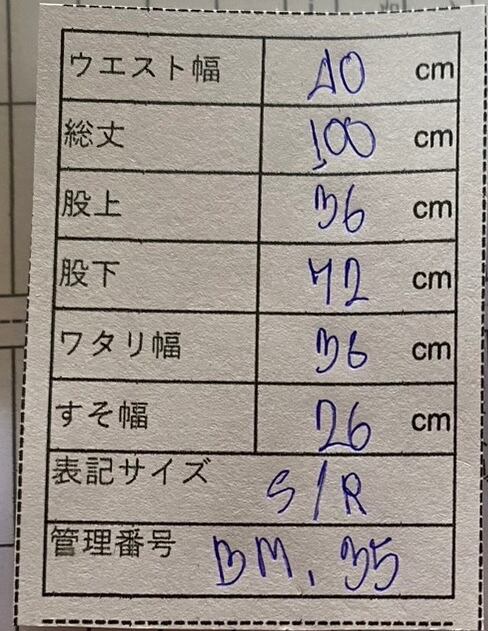 ウエスト幅 40 cm
総丈 100 cm
股上 36 cm
股下 72 cm
ワタリ幅 36 cm
すそ幅 26 cm
表記サイズ S/R
管理番号 BM. 35